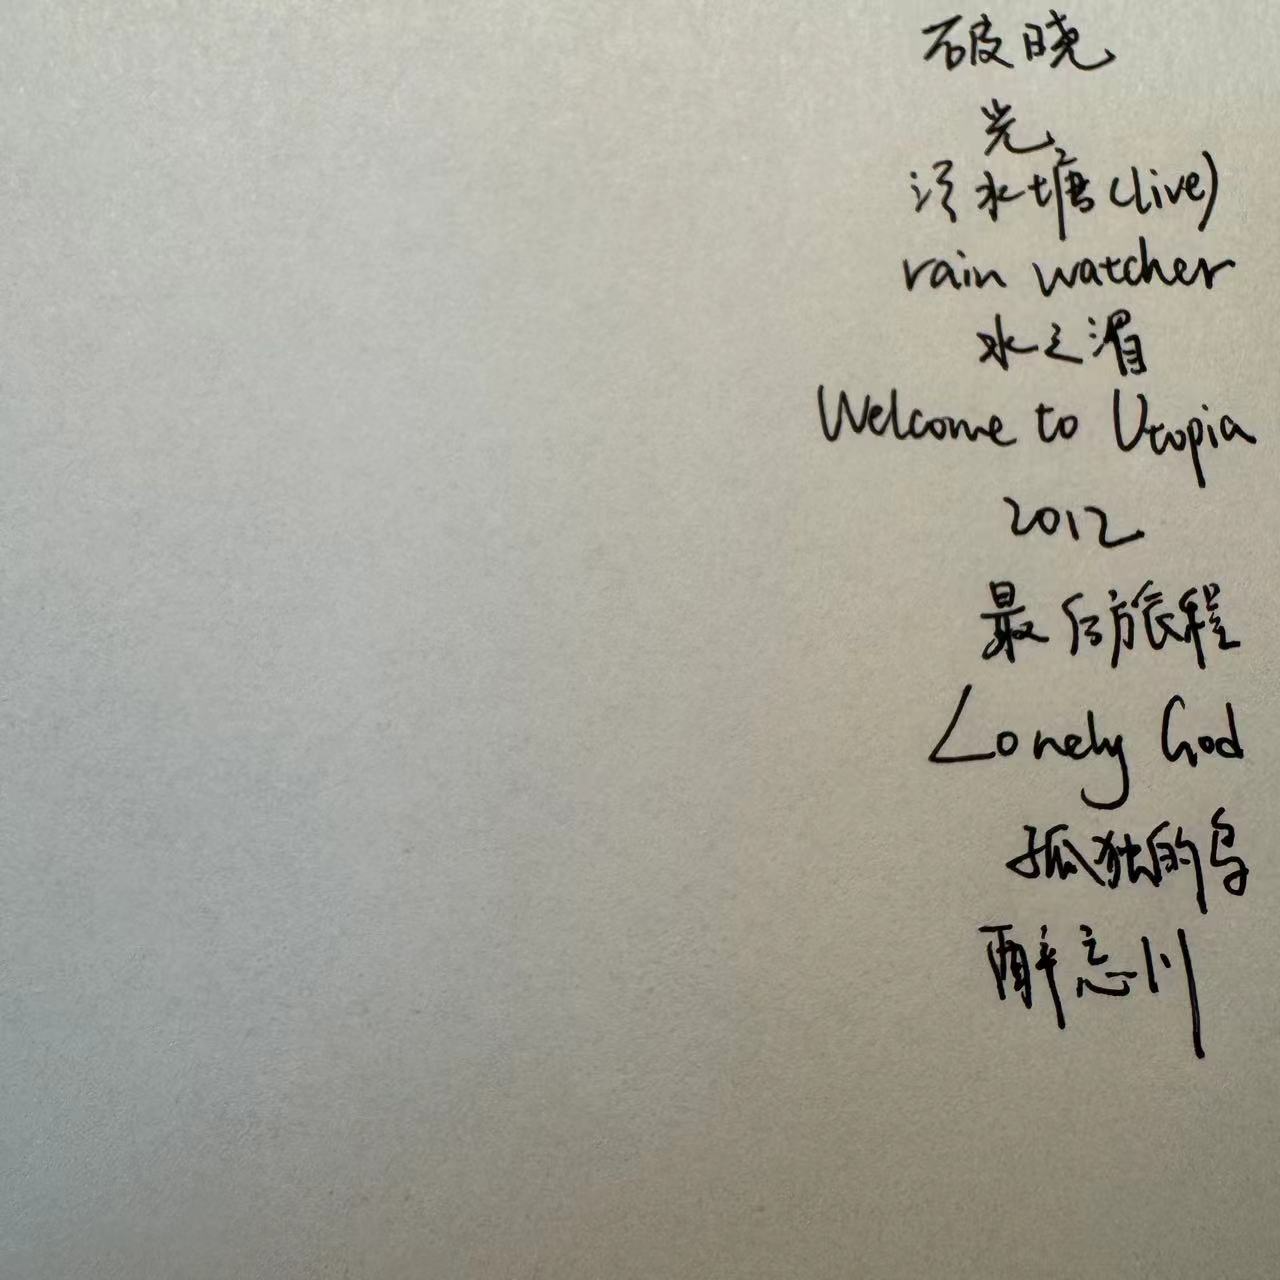 破晓
光
浮水塘(live)
rain watcher
水之湄
Welcome to Utopia
2012
最后旅程
Lonely God
孤独的鸟
醉忘川